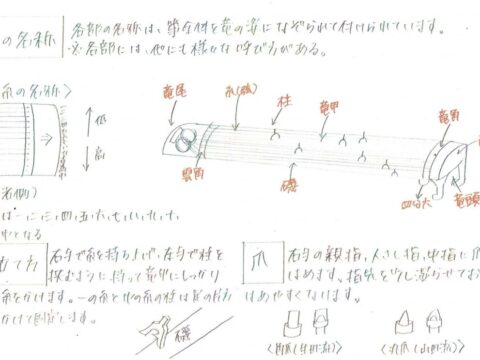 の名称
各部の名称は、箏全体を竜の姿になぞらえて付けられています。
※各部には、他にも様々な呼び方がある。
糸の名称〉
竜尾
糸(絃)
柱
竜甲
竜角
雲角
磯
四分六
竜頭
低
高
は一、二、三、四、五、六、七、八、九、十、
となる
て方
右手で糸を持ち上げ、左手で柱を
挟むように持って竜甲にしっかり
糸をかけます。一の糸と他の糸の柱は足の方が
かけて固定します。
磯
爪
右手の親指、人さし指、中指に爪
はめます。指先を少し濡らせてお
はめやすくなります。
〈角爪(生田流)〉
〈丸爪(山田流)〉